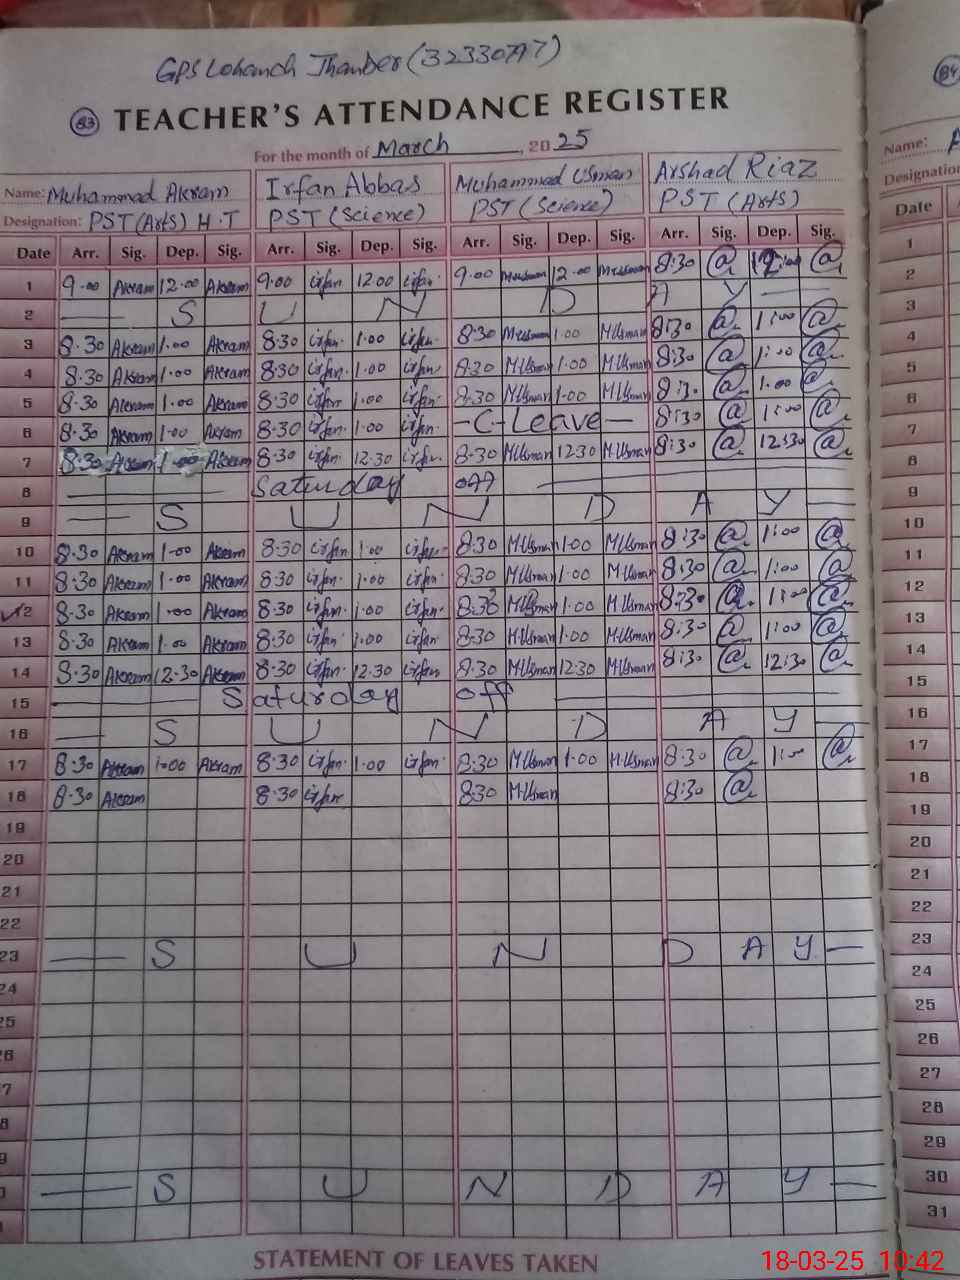 GPS Lohanch Thamber (32330797)
83 TEACHER'S ATTENDANCE REGISTER 84
For the month of March, 2025
Name: Muhammad Akram Irfan Abbas Muhammad Usman Arshad Riaz Name: A
Designation: PST (Arts) H.T PST (Science) PST (Science) PST (Arts) Designation
Date Arr. Sig. Dep. Sig. Arr. Sig. Dep. Sig. Arr. Sig. Dep. Sig. Arr. Sig. Dep. Sig. Date
1 9.00 Akram 12.00 Akram 9.00 Irfan 12.00 Irfan 9.00 M.Usman 12.00 M.Usman 8:30 @ 12:00 @ 1
2 S U N D A Y 2
3 8.30 Akram 1.00 Akram 8.30 Irfan 1.00 Irfan 8.30 M.Usman 1.00 M.Usman 8:30 @ 1:00 @ 3
4 8.30 Akram 1.00 Akram 8.30 Irfan 1.00 Irfan 8.30 M.Usman 1.00 M.Usman 8:30 @ 1:00 @ 4
5 8.30 Akram 1.00 Akram 8.30 Irfan 1.00 Irfan 8.30 M.Usman 1.00 M.Usman 8:30 @ 1.00 @ 5
6 8.30 Akram 1.00 Akram 8.30 Irfan 1.00 Irfan -C-Leave- 8:30 @ 1:00 @ 6
7 8.30 Akram 1.00 Akram 8.30 Irfan 12.30 Irfan 8.30 M.Usman 12.30 M.Usman 8:30 @ 12:30 @ 7
8 Saturday off 8
9 S U N D A Y 9
10 8.30 Akram 1.00 Akram 8.30 Irfan 1.00 Irfan 8.30 M.Usman 1.00 M.Usman 8:30 @ 1:00 @ 10
11 8.30 Akram 1.00 Akram 8.30 Irfan 1.00 Irfan 8.30 M.Usman 1.00 M.Usman 8:30 @ 1:00 @ 11
12 8.30 Akram 1.00 Akram 8.30 Irfan 1.00 Irfan 8.30 M.Usman 1.00 M.Usman 8:30 @ 1:00 @ 12
13 8.30 Akram 1.00 Akram 8.30 Irfan 1.00 Irfan 8.30 M.Usman 1.00 M.Usman 8:30 @ 1:00 @ 13
14 8.30 Akram 12.30 Akram 8.30 Irfan 12.30 Irfan 8.30 M.Usman 12.30 M.Usman 8:30 @ 12:30 @ 14
15 Saturday off 15
16 S U N D A Y 16
17 8.30 Akram 1.00 Akram 8.30 Irfan 1.00 Irfan 8.30 M.Usman 1.00 M.Usman 8:30 @ 1:00 @ 17
18 8.30 Akram 8.30 Irfan 8.30 M.Usman 8:30 @ 18
19 19
20 20
21 21
22 22
23 S U N D A Y 23
24 24
25 25
26 26
7 27
8 28
9 29
S U N D A Y 30
31
STATEMENT OF LEAVES TAKEN
18-03-25 10:42